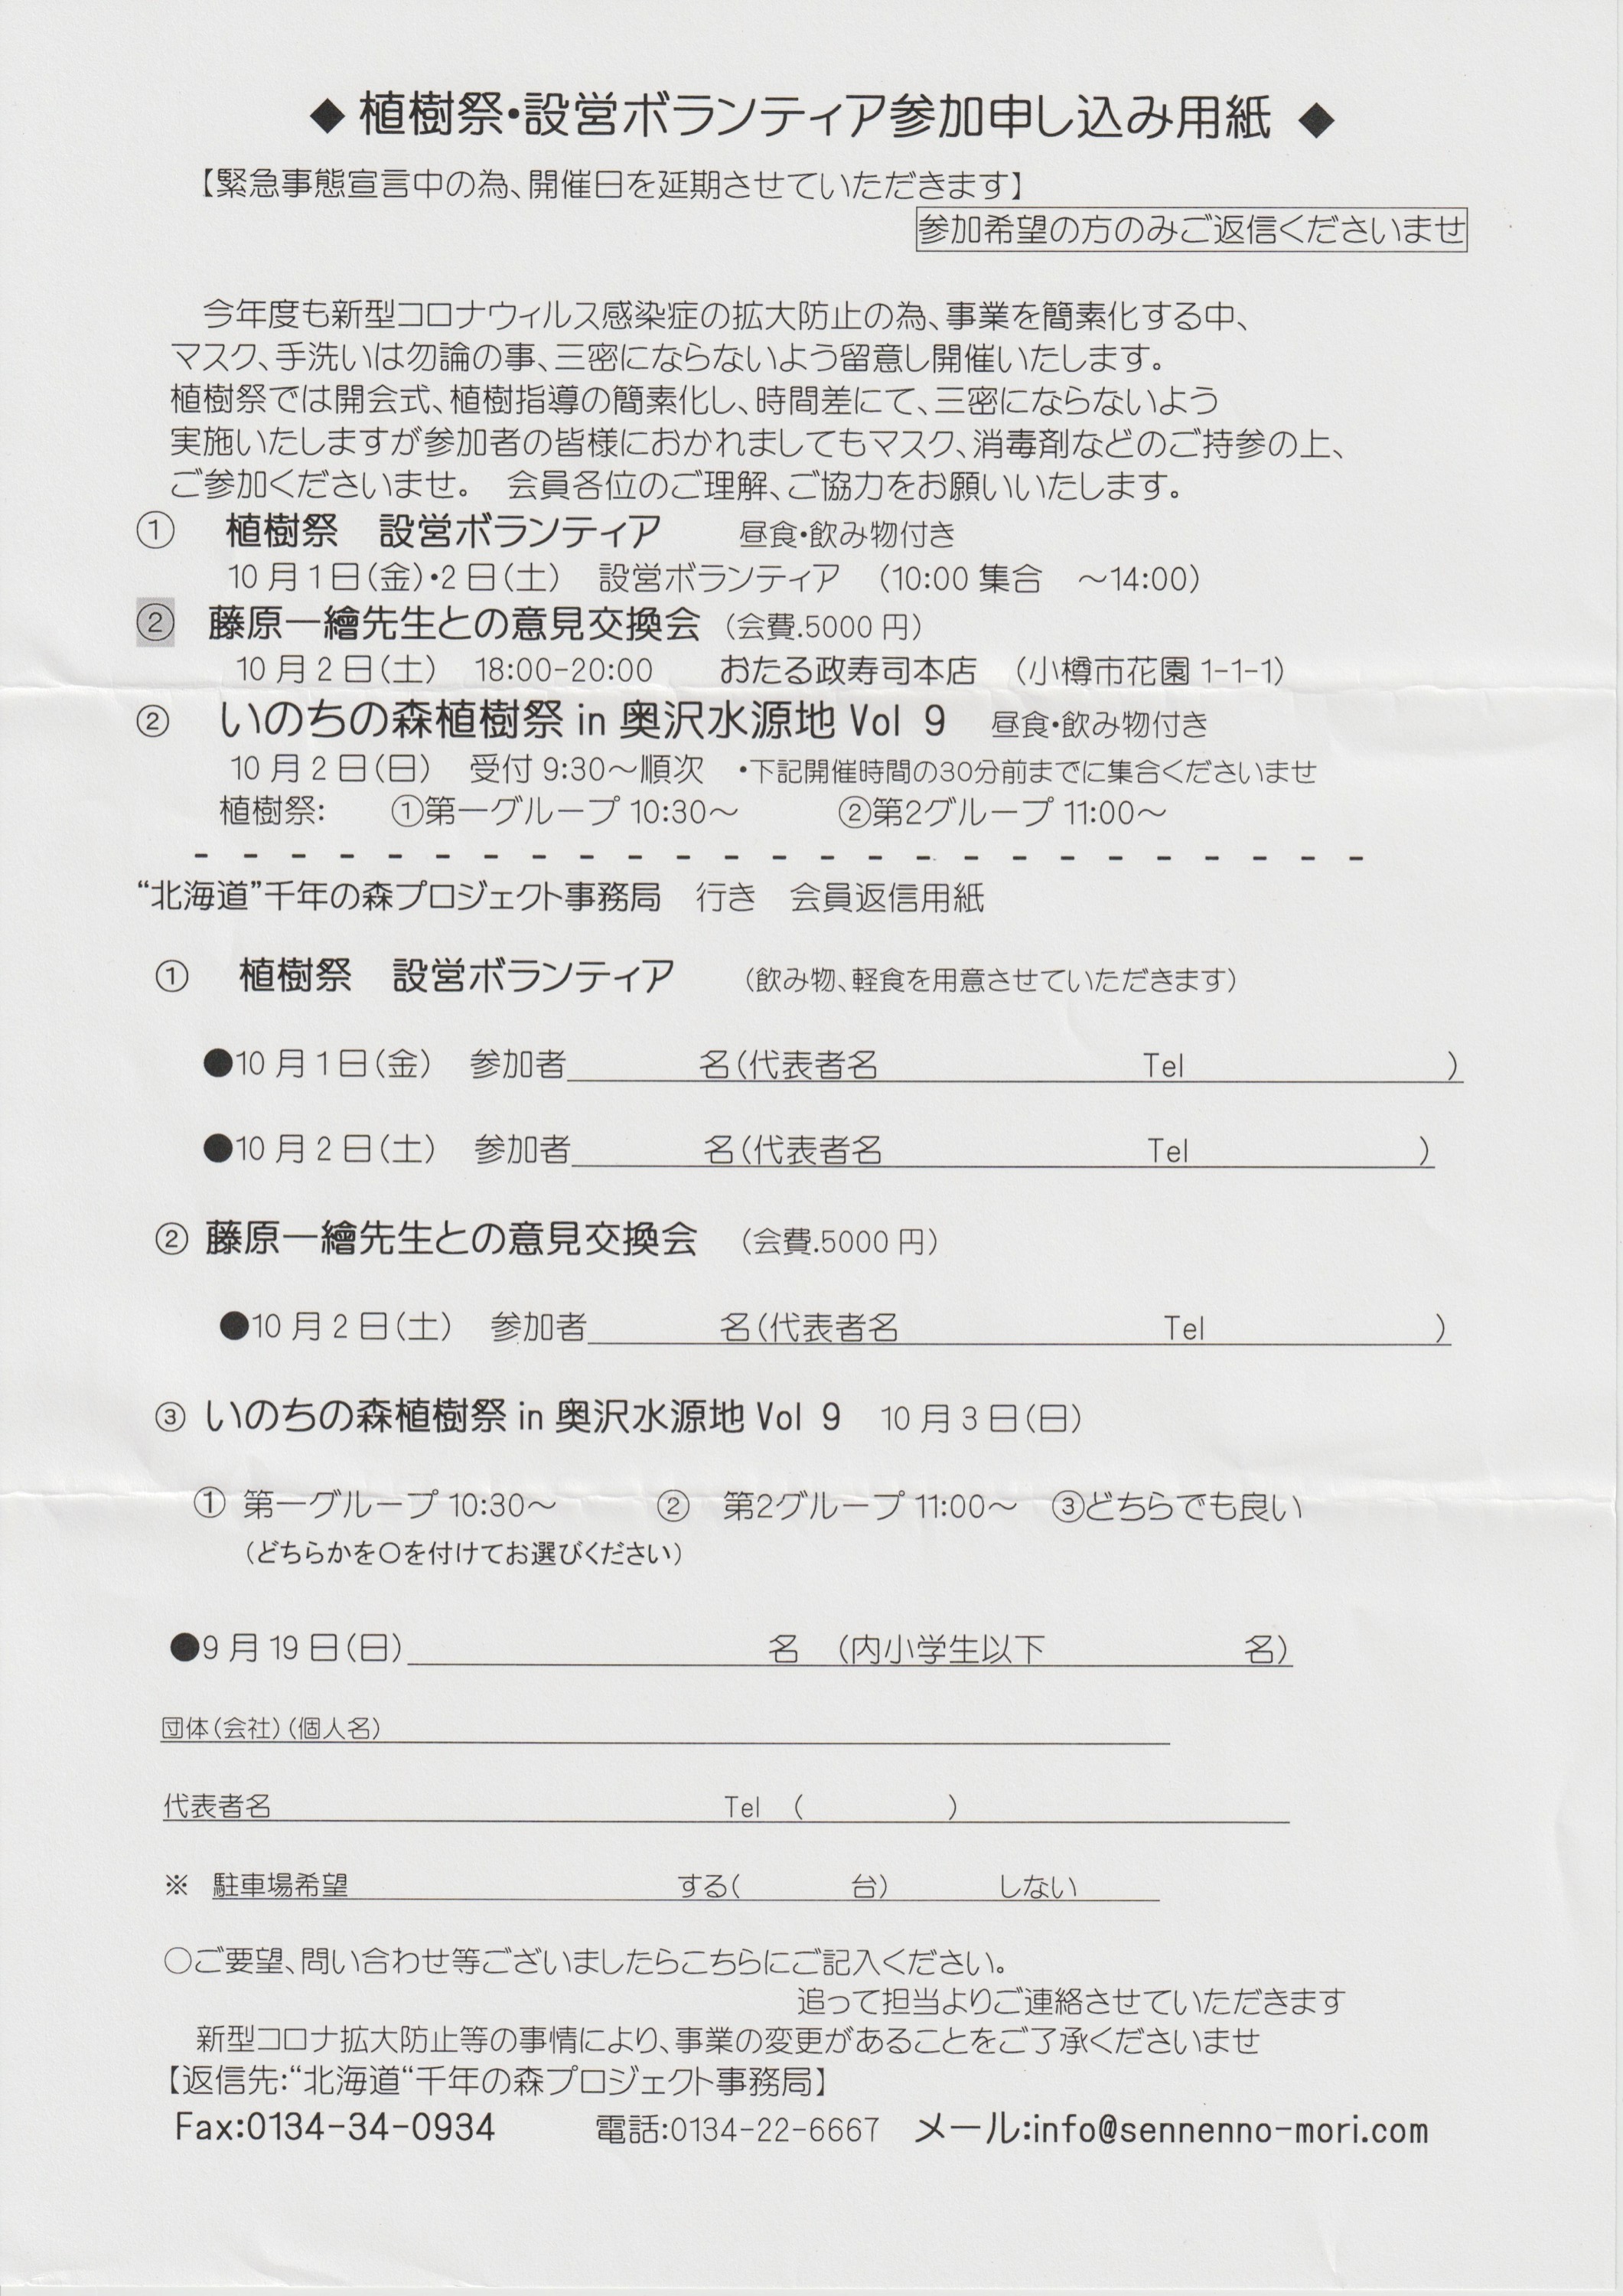 ◆ 植樹祭・設営ボランティア参加申し込み用紙 ◆
【緊急事態宣言中の為、開催日を延期させていただきます】
参加希望の方のみご返信くださいませ
今年度も新型コロナウィルス感染症の拡大防止の為、事業を簡素化する中、
マスク、手洗いは勿論の事、三密にならないよう留意し開催いたします。
植樹祭では開会式、植樹指導の簡素化し、時間差にて、三密にならないよう
実施いたしますが参加者の皆様におかれましてもマスク、消毒剤などのご持参の上、
ご参加くださいませ。　会員各位のご理解、ご協力をお願いいたします。
①　植樹祭　設営ボランティア　　昼食・飲み物付き
10月1日(金)・2日(土)　設営ボランティア　(10:00集合　～14:00)
②　藤原一繪先生との意見交換会　(会費.5000円)
10月2日(土)　18:00-20:00　　おたる政寿司本店　(小樽市花園1-1-1)
②　いのちの森植樹祭 in 奥沢水源地 Vol 9　昼食・飲み物付き
10月2日(日)　受付9:30～順次　・下記開催時間の30分前までに集合くださいませ
植樹祭:　　①第一グループ10:30～　　　②第2グループ11:00～
- - - - - - - - - - - - - - - - - - - - - - - - -
“北海道”千年の森プロジェクト事務局　行き　会員返信用紙
①　植樹祭　設営ボランティア　　(飲み物、軽食を用意させていただきます)
●10月1日(金)　参加者＿＿＿＿名(代表者名　　　　　　　　Tel　　　　　　　　)
●10月2日(土)　参加者＿＿＿＿名(代表者名　　　　　　　　Tel　　　　　　　)
② 藤原一繪先生との意見交換会　(会費.5000円)
●10月2日(土)　参加者＿＿＿＿名(代表者名　　　　　　　　Tel　　　　　　　)
③ いのちの森植樹祭 in 奥沢水源地 Vol 9　10月3日(日)
① 第一グループ10:30～　　　②　第2グループ11:00～　③どちらでも良い
(どちらかを〇を付けてお選びください)
●9月19日(日)＿＿＿＿＿＿＿＿名　(内小学生以下　　　　　　名)
団体(会社)(個人名)
代表者名　　　　　　　　　　　　　　Tel　(　　　　　)
※　駐車場希望　　　　　　　　　　する(　　　　台)　　　　しない
○ご要望、問い合わせ等ございましたらこちらにご記入ください。
追って担当よりご連絡させていただきます
新型コロナ拡大防止等の事情により、事業の変更があることをご了承くださいませ
【返信先:“北海道“千年の森プロジェクト事務局】
Fax:0134-34-0934　　　電話:0134-22-6667　メール:info@sennenno-mori.com